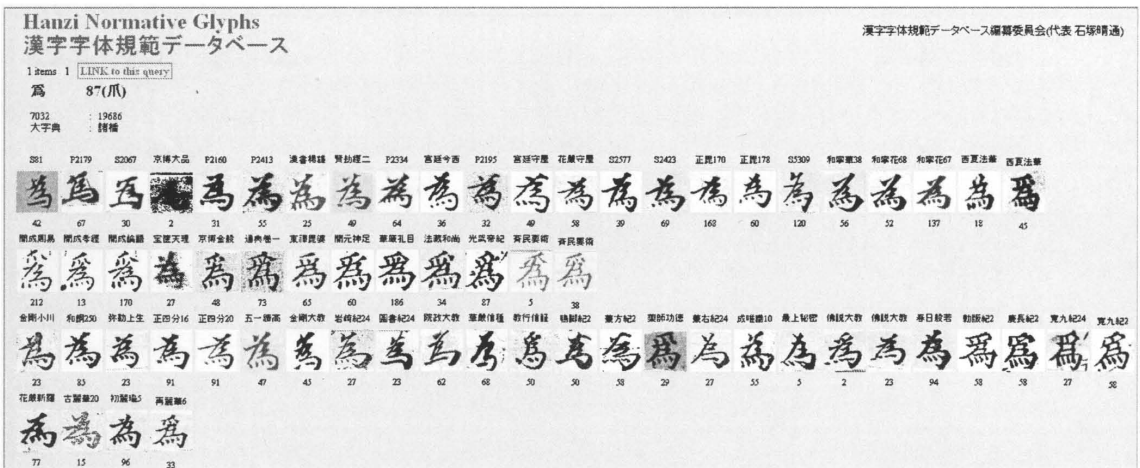 Hanzi Normative Glyphs
漢字字体規範データベース
漢字字体規範データベース編纂委員会(代表 石塚晴通)
1 items 1 LINK to this query
爲 87(爪)
7032 : 19686
大字典 : 諸橋
S81 P2179 S2067 京博大品 P2160 P2413 漢書楊雄 賢劫経二 P2334 宮廷今西 P2195 宮廷守屋 花厳守屋 S2577 S2423 正毘170 正毘178 S5309 和寧華38 和寧花68 和寧花67 西夏法華 西夏法華
42 67 30 2 31 55 25 49 64 36 32 49 58 39 69 168 60 120 56 52 137 18 45
開成周易 開成孝経 開成論語 宝篋天理 京博金殿 通典巻一 東禅毘婆 開元神足 華厳孔目 法蔵和尚 光武帝紀 斉民要術 斉民要術
212 13 170 27 48 73 65 60 186 34 87 5 38
金剛小川 和銅250 弥勒上生 正四分16 正四分20 五一勝高 金剛大教 岩崎紀24 図書紀24 院政大教 華厳信種 教行信証 鴨脚紀2 兼方紀2 聖師功徳 兼右紀24 成唯識10 最上秘密 佛説大教 佛説大教 春日般若 勅版紀2 慶長紀2 寛九紀24 寛九紀2
23 85 23 91 91 47 45 27 23 62 68 50 50 58 29 27 55 5 2 23 94 58 58 27 58
花厳新羅 古麗華20 初麗瑜5 再麗華6
77 15 96 33